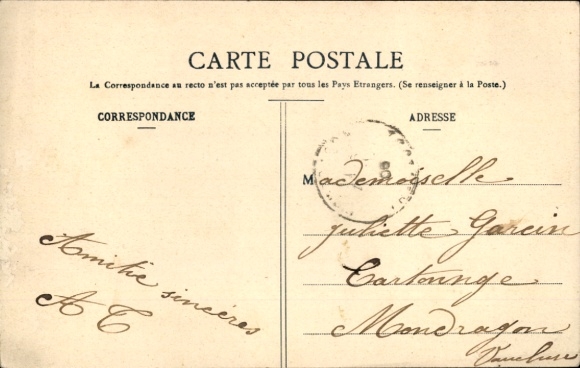 CARTE POSTALE
La Correspondance au recto n'est pas acceptée par tous les Pays Etrangers. (Se renseigner à la Poste.)
CORRESPONDANCE
Amitié sincères
A T
ADRESSE
Mademoiselle
Juliette Garcin
Cartonnge
Mondragon
Vaucluse